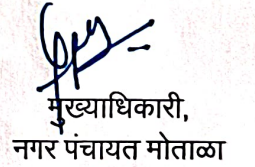 मुख्याधिकारी,
नगर पंचायत मोताळा